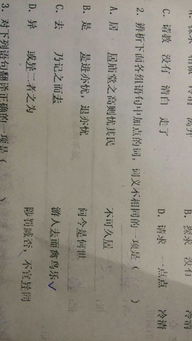 C. 请教 没有 清白 走了 D. 请求 一点点 冷清
2. 辨析下面各组语句中加点的词,词义不相同的一项是( )
A. 居 居庙堂之高则忧其民 不可久居
B. 是 是进亦忧,退亦忧 问今是何世
C. 去 乃记之而去 游人去而禽鸟乐✓
D. 异 或异二者之为 陟罚臧否,不宜异同
3. 对下列语句翻译正确的一项是( )